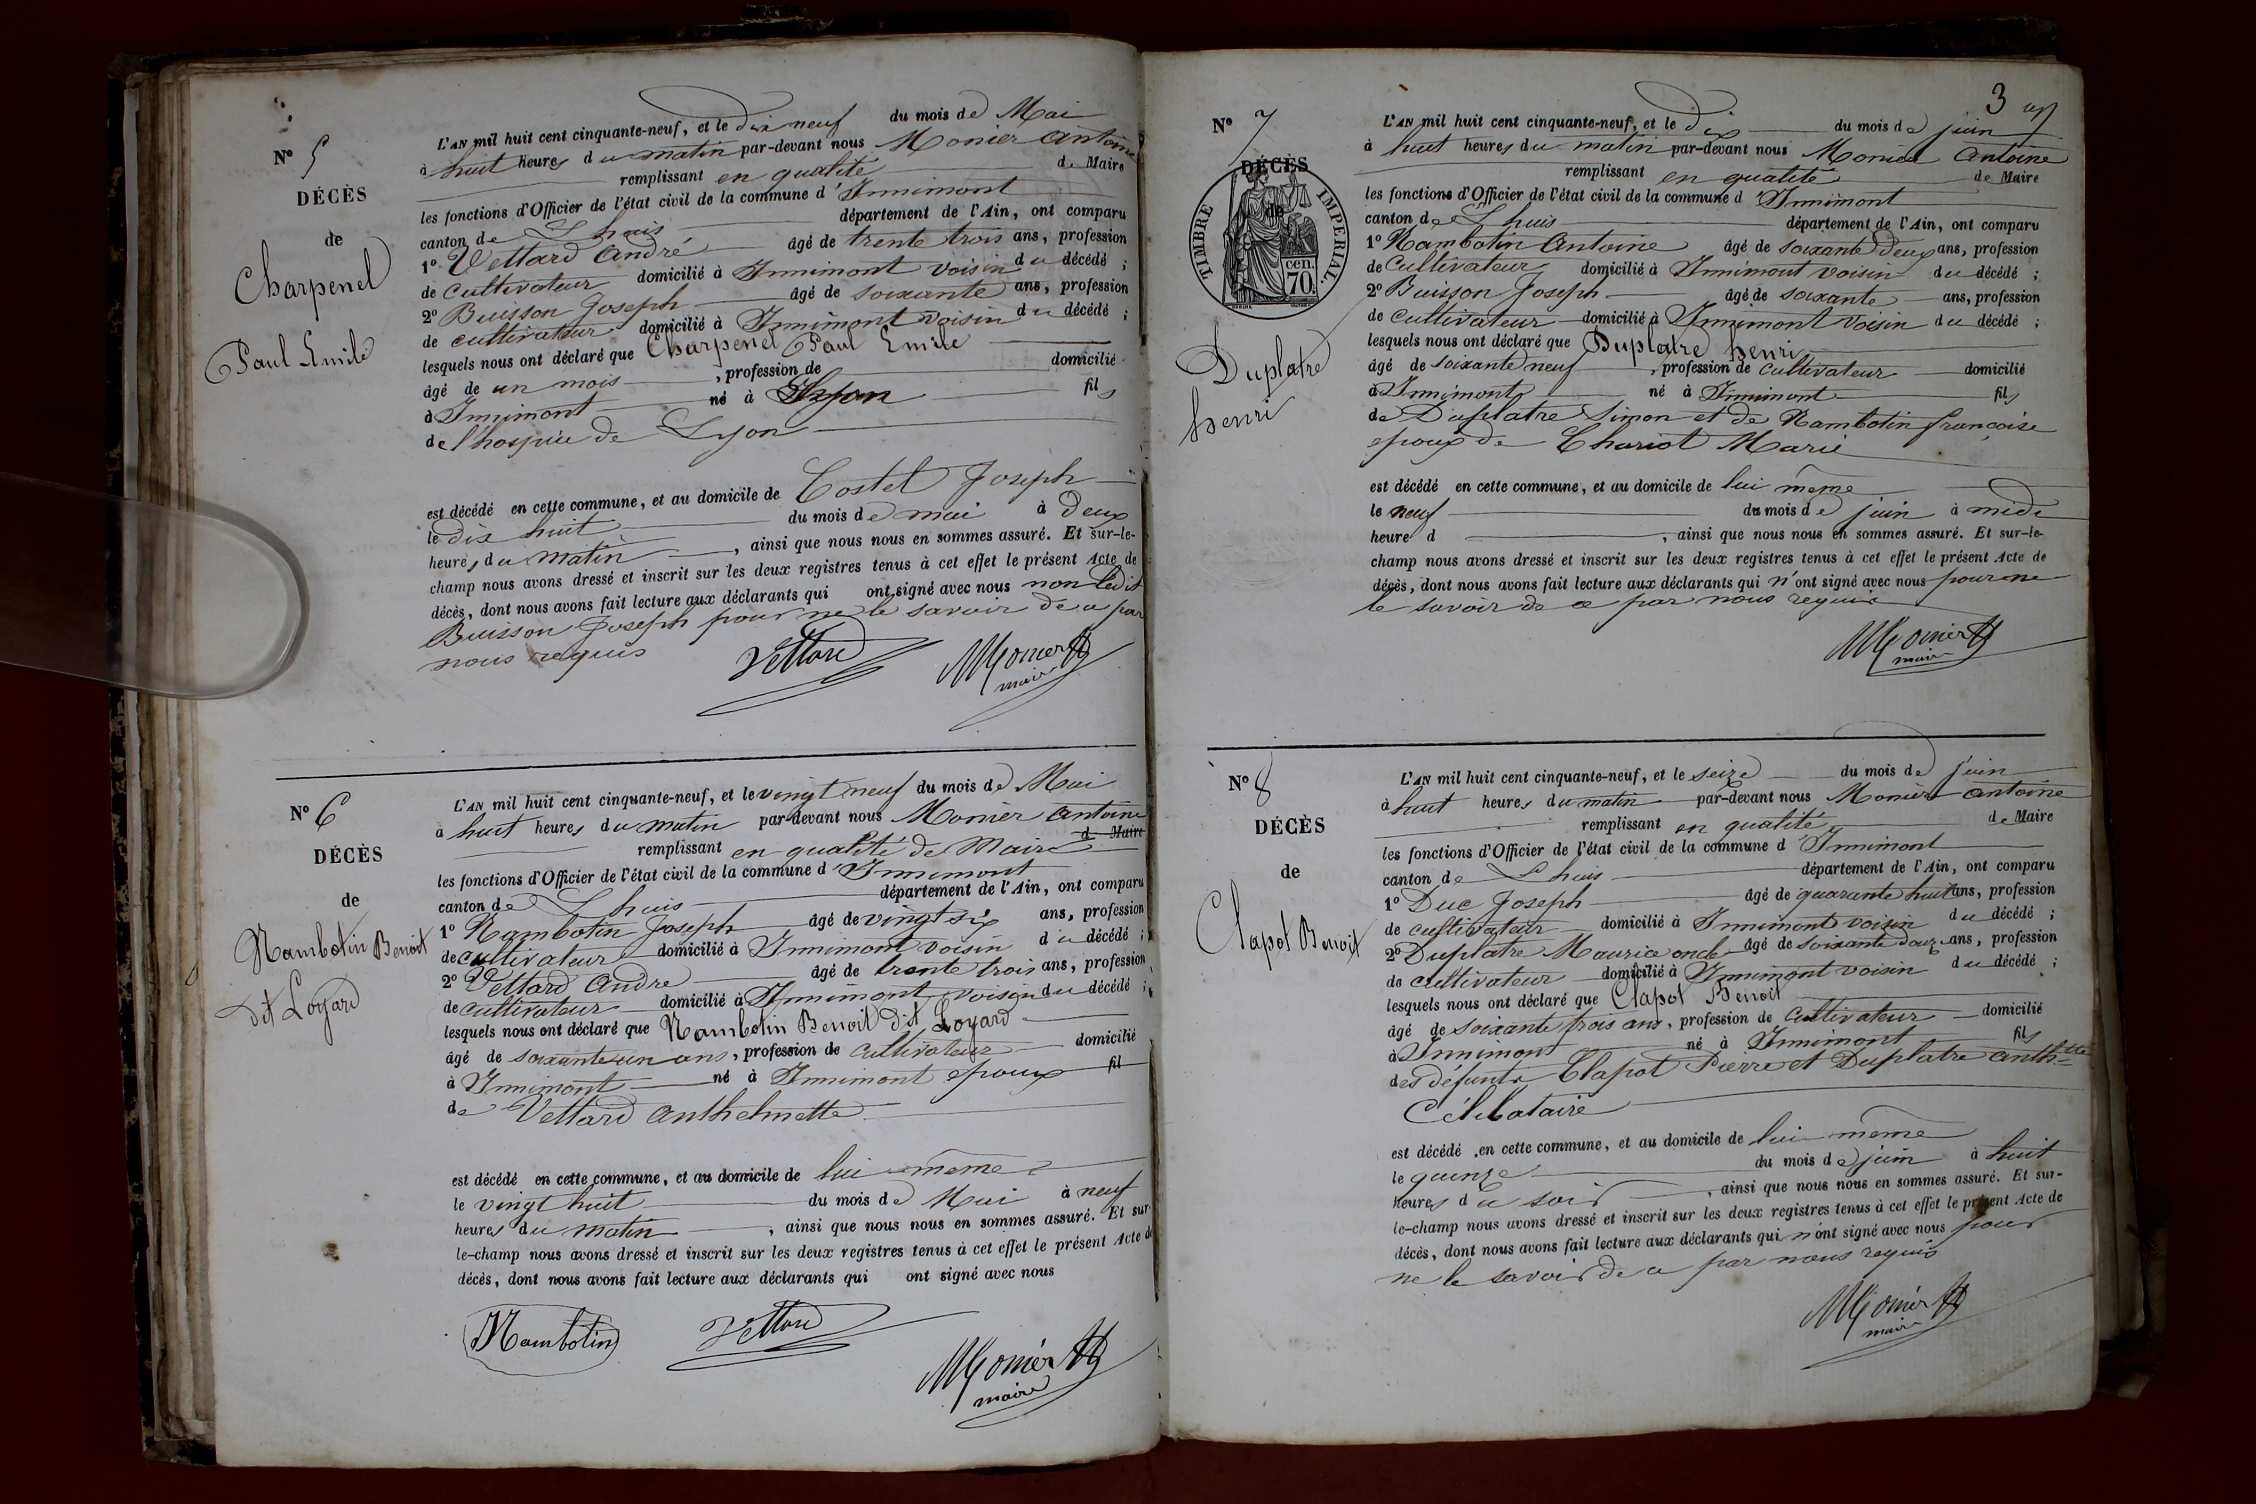 N° 5
DÉCÈS
de
Charpenel
Paul Emile
L'AN mil huit cent cinquante-neuf, et le dix neuf du mois de Mai
à huit heures du matin par-devant nous Monier Antoine
remplissant en qualité de Maire
les fonctions d'Officier de l'état civil de la commune d'Innimont
canton de Lhuis département de l'Ain, ont comparu
1° Vettard André âgé de trente trois ans, profession
de cultivateur domicilié à Innimont voisin du décédé ;
2° Buisson Joseph âgé de soixante ans, profession
de cultivateur domicilié à Innimont voisin du décédé ;
lesquels nous ont déclaré que Charpenel Paul Emile
âgé de un mois, profession de domicilié
à Innimont né à Lyon fils
de l'hospice de Lyon
est décédé en cette commune, et au domicile de Costel Joseph
le dix huit du mois de mai à deux
heures du matin, ainsi que nous nous en sommes assuré. Et sur-le-
champ nous avons dressé et inscrit sur les deux registres tenus à cet effet le présent Acte de
décès, dont nous avons fait lecture aux déclarants qui ont signé avec nous non ledit
Buisson Joseph pour ne le savoir de ce par
nous requis
Vettard Monier
maire
N° 6
DÉCÈS
de
Nambotin Benoit
dit Loyard
L'AN mil huit cent cinquante-neuf, et le vingt neuf du mois de Mai
à huit heures du matin par-devant nous Monier Antoine
d Maire
remplissant en qualité de Maire
les fonctions d'Officier de l'état civil de la commune d'Innimont
canton de Lhuis département de l'Ain, ont comparu
1° Nambotin Joseph âgé de vingt six ans, profession
de cultivateur domicilié à Innimont voisin du décédé ;
2° Vettard André âgé de trente trois ans, profession
de cultivateur domicilié à Innimont voisin du décédé ;
lesquels nous ont déclaré que Nambotin Benoit dit Loyard
âgé de soixante un ans, profession de cultivateur domicilié
à Innimont né à Innimont epoux fil
de Vettard Anthelmette
est décédé en cette commune, et au domicile de lui même
le vingt huit du mois de Mai à neuf
heures du matin, ainsi que nous nous en sommes assuré. Et sur-
le-champ nous avons dressé et inscrit sur les deux registres tenus à cet effet le présent Acte de
décès, dont nous avons fait lecture aux déclarants qui ont signé avec nous
Nambotin Vettard Monier
maire
3
N° 7
DÉCÈS
de
TIMBRE IMPÉRIAL.
cen.
70.
Duplatre
henri
L'AN mil huit cent cinquante-neuf, et le dix du mois de juin
à huit heures du matin par-devant nous Monier Antoine
remplissant en qualité de Maire
les fonctions d'Officier de l'état civil de la commune d'Innimont
canton de Lhuis département de l'Ain, ont comparu
1° Nambotin Antoine âgé de soixante deux ans, profession
de Cultivateur domicilié à Innimont voisin du décédé ;
2° Buisson Joseph âgé de soixante ans, profession
de cultivateur domicilié à Innimont voisin du décédé ;
lesquels nous ont déclaré que Duplatre henri
âgé de soixante neuf, profession de cultivateur domicilié
à Innimont né à Innimont fils
de Duplatre Simon et de Nambotin françoise
epoux de Chariot Marie
est décédé en cette commune, et au domicile de lui même
le neuf du mois de juin à midi
heure d, ainsi que nous nous en sommes assuré. Et sur-le-
champ nous avons dressé et inscrit sur les deux registres tenus à cet effet le présent Acte de
décès, dont nous avons fait lecture aux déclarants qui n'ont signé avec nous pour ne
le savoir de ce par nous requis
Monier
maire
N° 8
DÉCÈS
de
Clapot Benoit
L'AN mil huit cent cinquante-neuf, et le seize du mois de juin
à huit heures du matin par-devant nous Monier Antoine
remplissant en qualité de Maire
les fonctions d'Officier de l'état civil de la commune d'Innimont
canton de Lhuis département de l'Ain, ont comparu
1° Duc Joseph âgé de quarante huit ans, profession
de cultivateur domicilié à Innimont voisin du décédé ;
2° Duplatre Maurice oncle âgé de soixante douze ans, profession
de cultivateur domicilié à Innimont voisin du décédé ;
lesquels nous ont déclaré que Clapot Benoit
âgé de soixante trois ans, profession de cultivateur domicilié
à Innimont né à Innimont fils
des défunts Clapot Pierre et Duplatre Anth.tte
Célibataire
est décédé en cette commune, et au domicile de lui même
le quinze du mois de juin à huit
heures du soir, ainsi que nous nous en sommes assuré. Et sur-
le-champ nous avons dressé et inscrit sur les deux registres tenus à cet effet le présent Acte de
décès, dont nous avons fait lecture aux déclarants qui n'ont signé avec nous pour
ne le savoir de ce par nous requis
Monier
maire